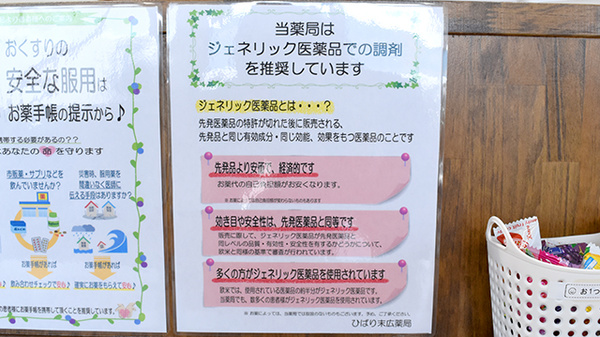 おくすりの
安全な服用は
お薬手帳の提示から♪
携帯する必要があるの??
あなたの命を守ります
市販薬・サプリなどを
飲んでいませんか?
災害時、服用薬を
間違いなく医師に
伝える手段はありますか?
お薬手帳があれば
お薬手帳があれば
飲み合わせチェックで安心♪
確実にお薬をもらえて安心♪
患者様にお薬手帳を携帯して頂くことを推奨しています。
当薬局は
ジェネリック医薬品での調剤
を推奨しています
ジェネリック医薬品とは・・・?
先発医薬品の特許が切れた後に販売される、
先発品と同じ有効成分・同じ効能、効果をもつ医薬品のことです
先発品より安価で、経済的です
お薬代の自己負担額がお安くなります。
効き目や安全性は、先発医薬品と同等です
販売に際して、ジェネリック医薬品が先発医薬品と
同レベルの品質・有効性・安全性を有するかどうかについて、
欧米と同様の基準で審査が行われています。
多くの方がジェネリック医薬品を使用されています
欧米では、使用されている医薬品の約半分がジェネリック医薬品です。
当薬局でも、数多くの患者様がジェネリック医薬品を使用されています。
ひばり末広薬局
お1つ